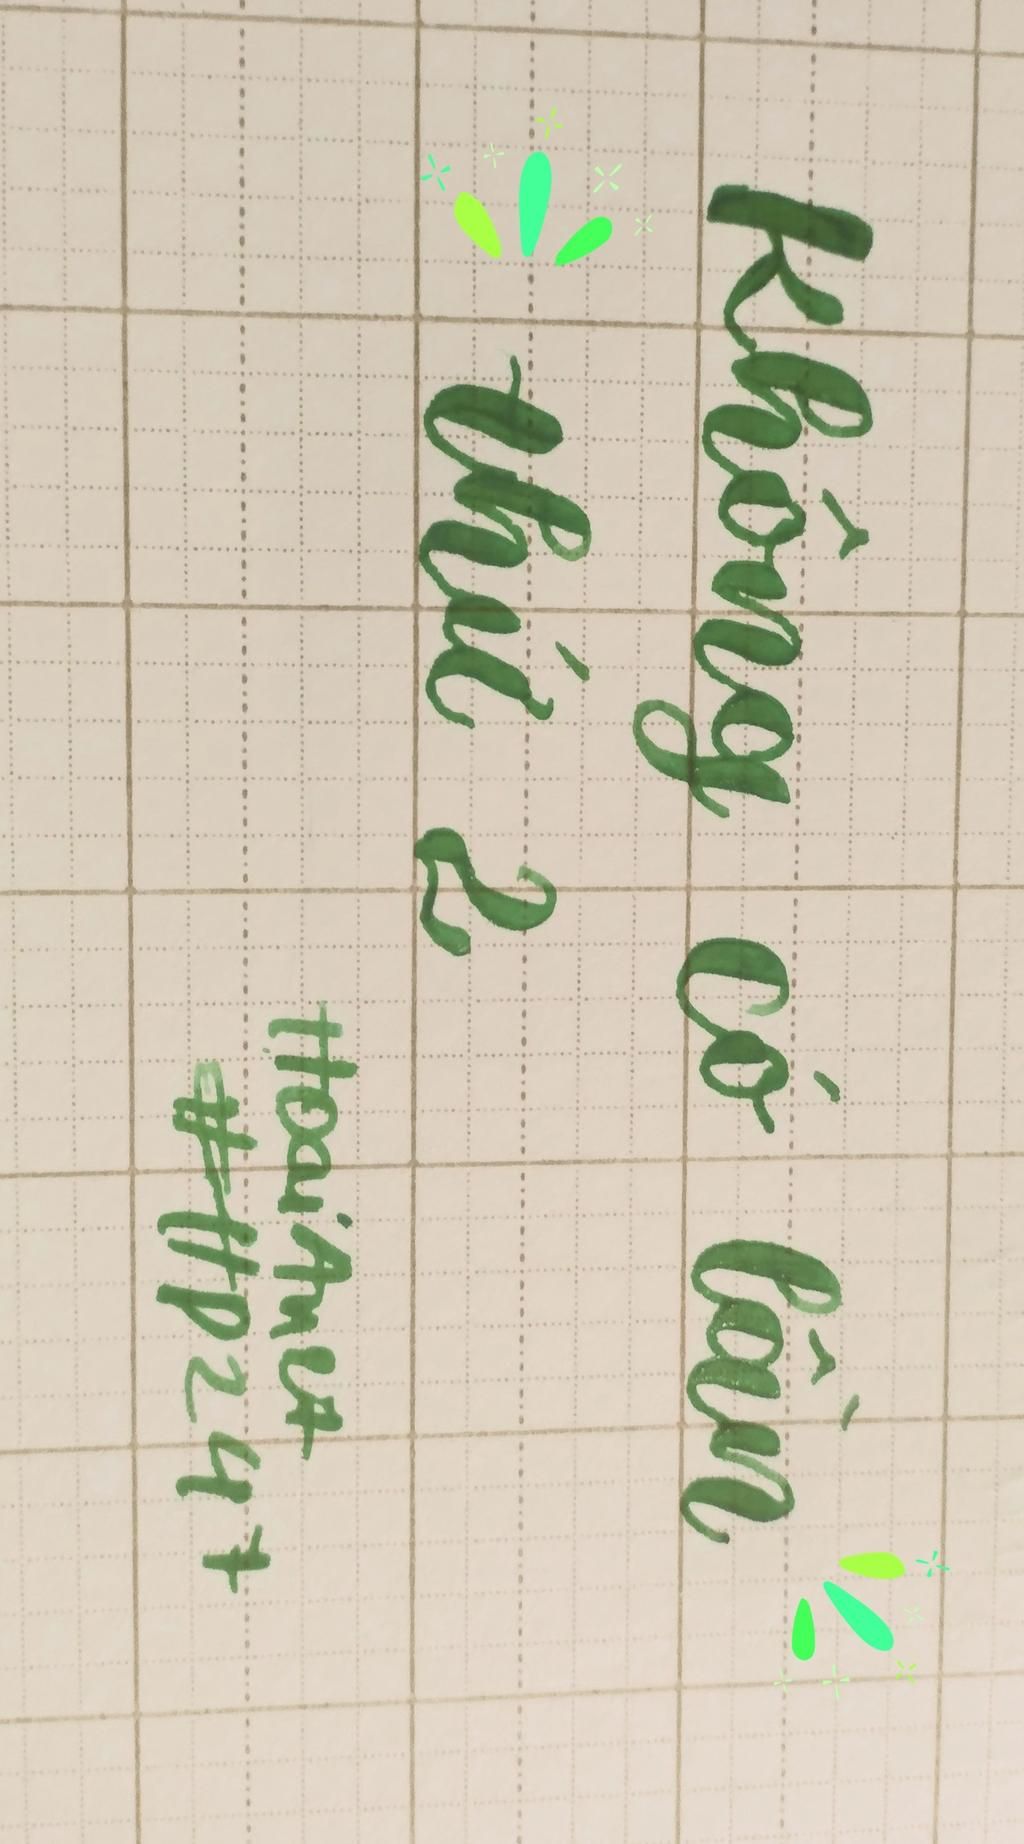 Không có lần
thứ 2
HoaiAnh
#HP247